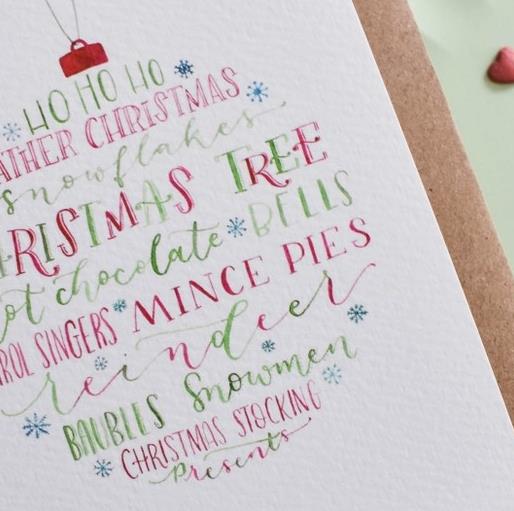 HO HO HO
ATHER CHRISTMAS
snowflakes
HRISTMAS TREE
ot chocolate BELLS
ROL SINGERS MINCE PIES
reindeer
BAUBLES Snowmen
CHRISTMAS STOCKING
Presents